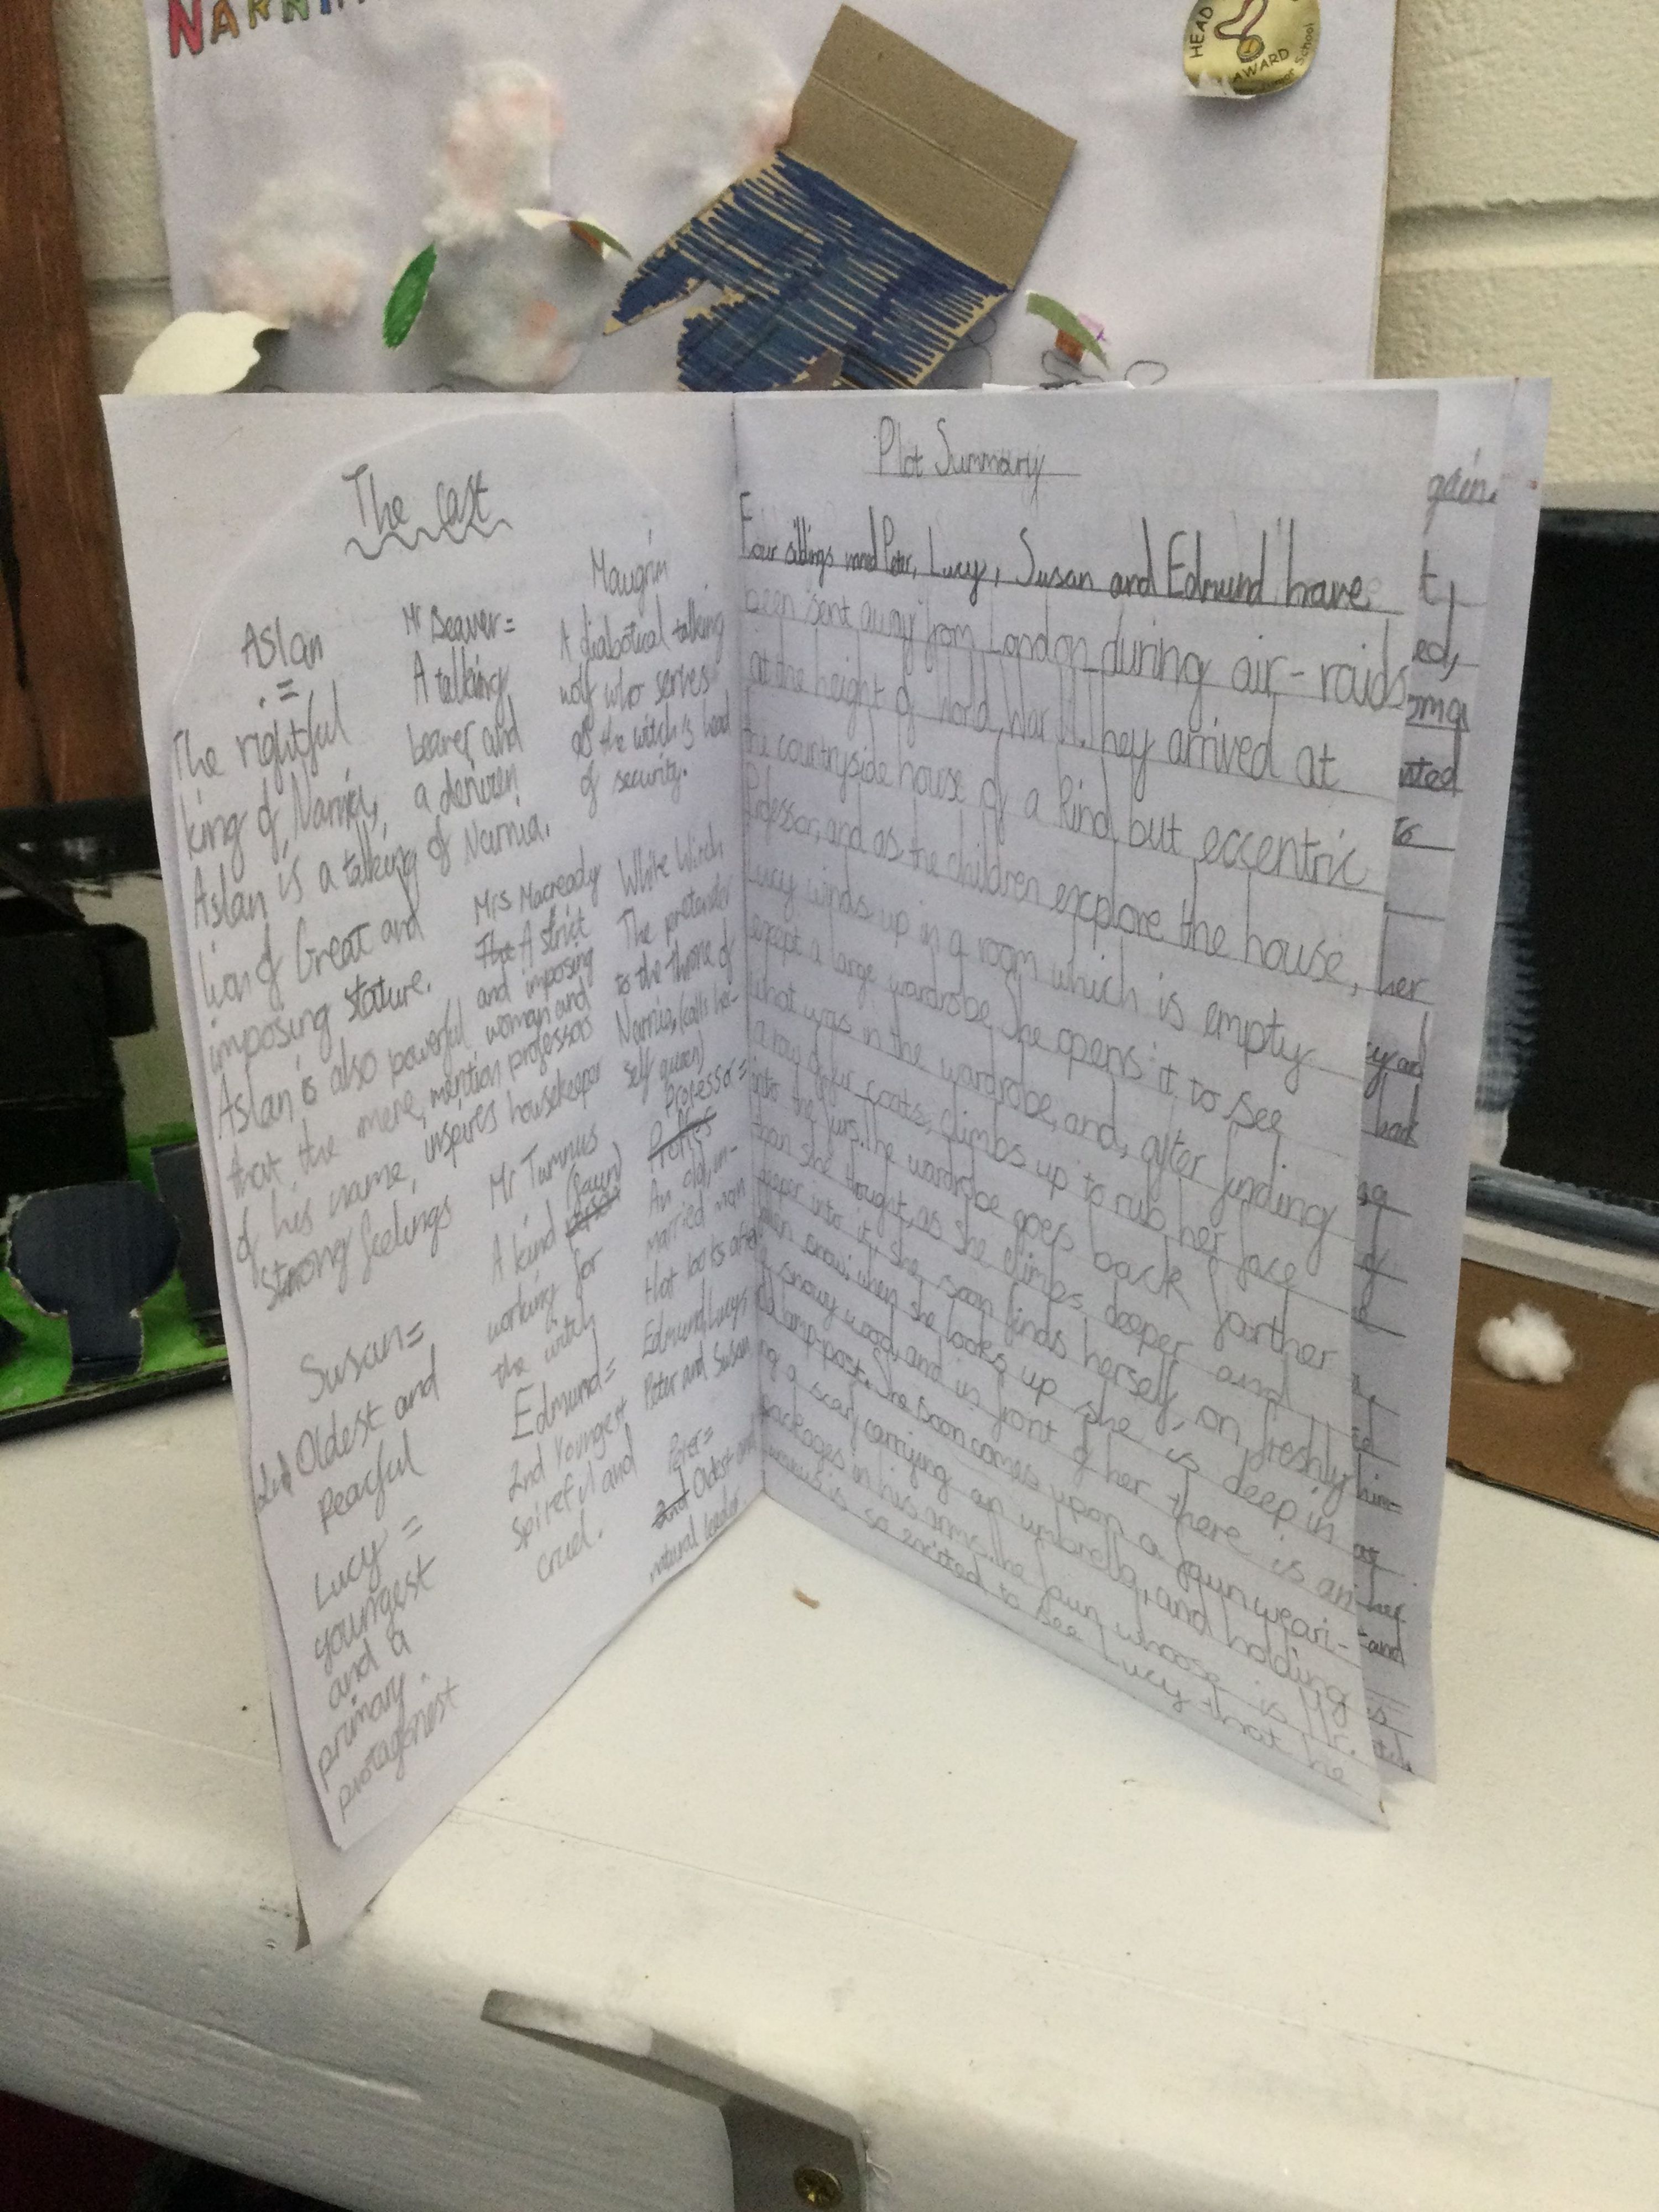 NARNI
HEAD
AWARD
Junior School
The cast
Aslan
=
The rightful
king of Narnia,
Aslan is a talking
lion of Great and
imposing stature.
Aslan is also powerful
that the mere mention
of his name, inspires
strong feelings
Susan=
2nd Oldest and
Peacful
Lucy =
youngest
and a
primary
protagenest
Mr Beaver=
A talking
beaver and
a denizen
of Narnia.
Mrs Macready
The A strict
and imposing
woman and
professors
housekeeper
Mr Tumnus
A kind (faun)
person
working for
the witch
Edmund=
2nd Youngest
Spiteful and
cruel.
Maugrim
A diabolical talking
wolf who serves
as the witch is head
of security.
White Witch
The pretender
to the throne of
Narnia, (calls her-
self queen)
Professor=
An old, un-
married man
that looks after
Edmund, Lucy,
Peter and Susan
Peter=
2nd Oldest and
natural leader
Plot Summary
Four siblings named Peter, Lucy, Susan and Edmund have
been sent away from London during air-raids
at the height of World War II. They arrived at
the countryside house of a kind but eccentric
Professor, and as the children explore the house,
Lucy winds up in a room which is empty
except a large wardrobe. She opens it to see
what was in the wardrobe, and, after finding
a row of fur coats, climbs up to rub her face
into the furs. The wardrobe goes back farther
than she thought, as she climbs deeper and
deeper into it, she soon finds herself, on freshly
fallen snow; when she looks up she is deep in
a snowy wood, and in front of her there is an
old lamp-post. She soon comes upon a faun weari-
ng a scarf carrying an umbrella, and holding
packages in his arms. The faun whoose is Mr.
Tumnus is so excited to see Lucy that he
gain.
t,
ed,
her
of
him-
her
and